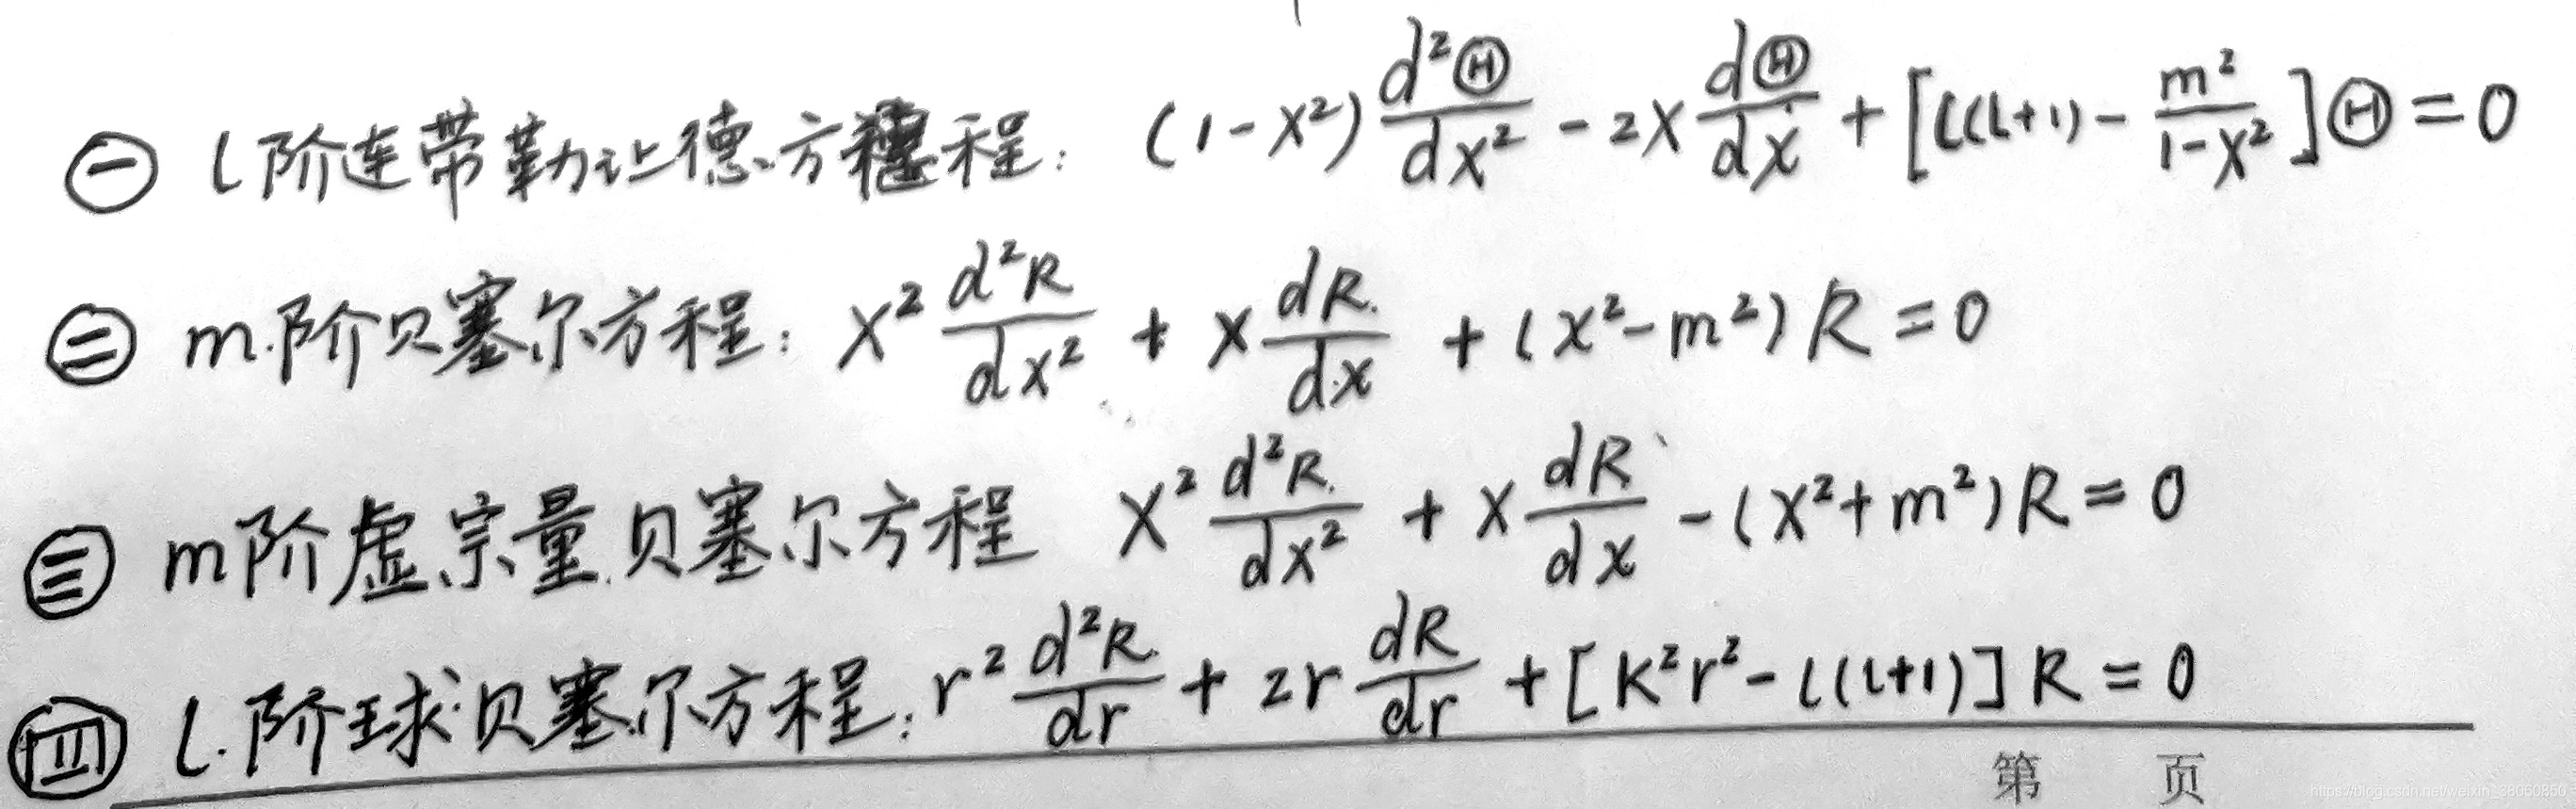 ㊀ l阶连带勒让德方程: (1-x²) d²Θ/dx² - 2x dΘ/dx + [l(l+1) - m²/(1-x²)]Θ = 0
㊁ m阶贝塞尔方程: x² d²R/dx² + x dR/dx + (x²-m²)R = 0
㊂ m阶虚宗量贝塞尔方程 x² d²R/dx² + x dR/dx - (x²+m²)R = 0
㊃ l阶球贝塞尔方程: r² d²R/dr + 2r dR/dr + [K²r² - l(l+1)]R = 0
第 页
https://blog.csdn.net/weixin_38060850